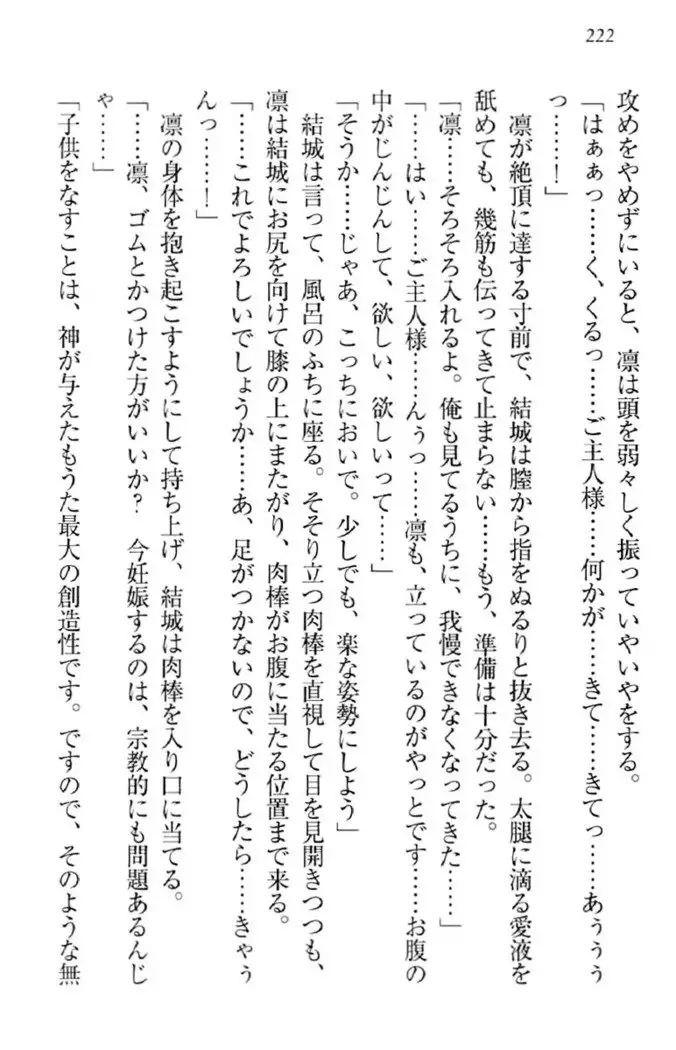 222
攻めをやめずにいると、凛は頭を弱々しく振っていやいやをする。
「はぁぁっ……く、くるっ……ご主人様……何かが……きて……きてっ……あぅぅぅ
っ……！」
凛が絶頂に達する寸前で、結城は膣から指をぬるりと抜き去る。太腿に滴る愛液を
舐めても、幾筋も伝ってきて止まらない……もう、準備は十分だった。
「凛……そろそろ入れるよ。俺も見てるうちに、我慢できなくなってきた……」
「……はい……ご主人様……んぅっ……凛も、立っているのがやっとです……お腹の
中がじんじんして、欲しい、欲しいって……」
「そうか……じゃあ、こっちにおいで。少しでも、楽な姿勢にしよう」
結城は言って、風呂のふちに座る。そそり立つ肉棒を直視して目を見開きつつも、
凛は結城にお尻を向けて膝の上にまたがり、肉棒がお腹に当たる位置まで来る。
「……これでよろしいでしょうか……あ、足がつかないので、どうしたら……きゃぅ
んっ……！」
凛の身体を抱き起こすようにして持ち上げ、結城は肉棒を入り口に当てる。
「……凛、ゴムとかつけた方がいいか？　今妊娠するのは、宗教的にも問題あるんじ
ゃ……」
「子供をなすことは、神が与えたもうた最大の創造性です。ですので、そのような無